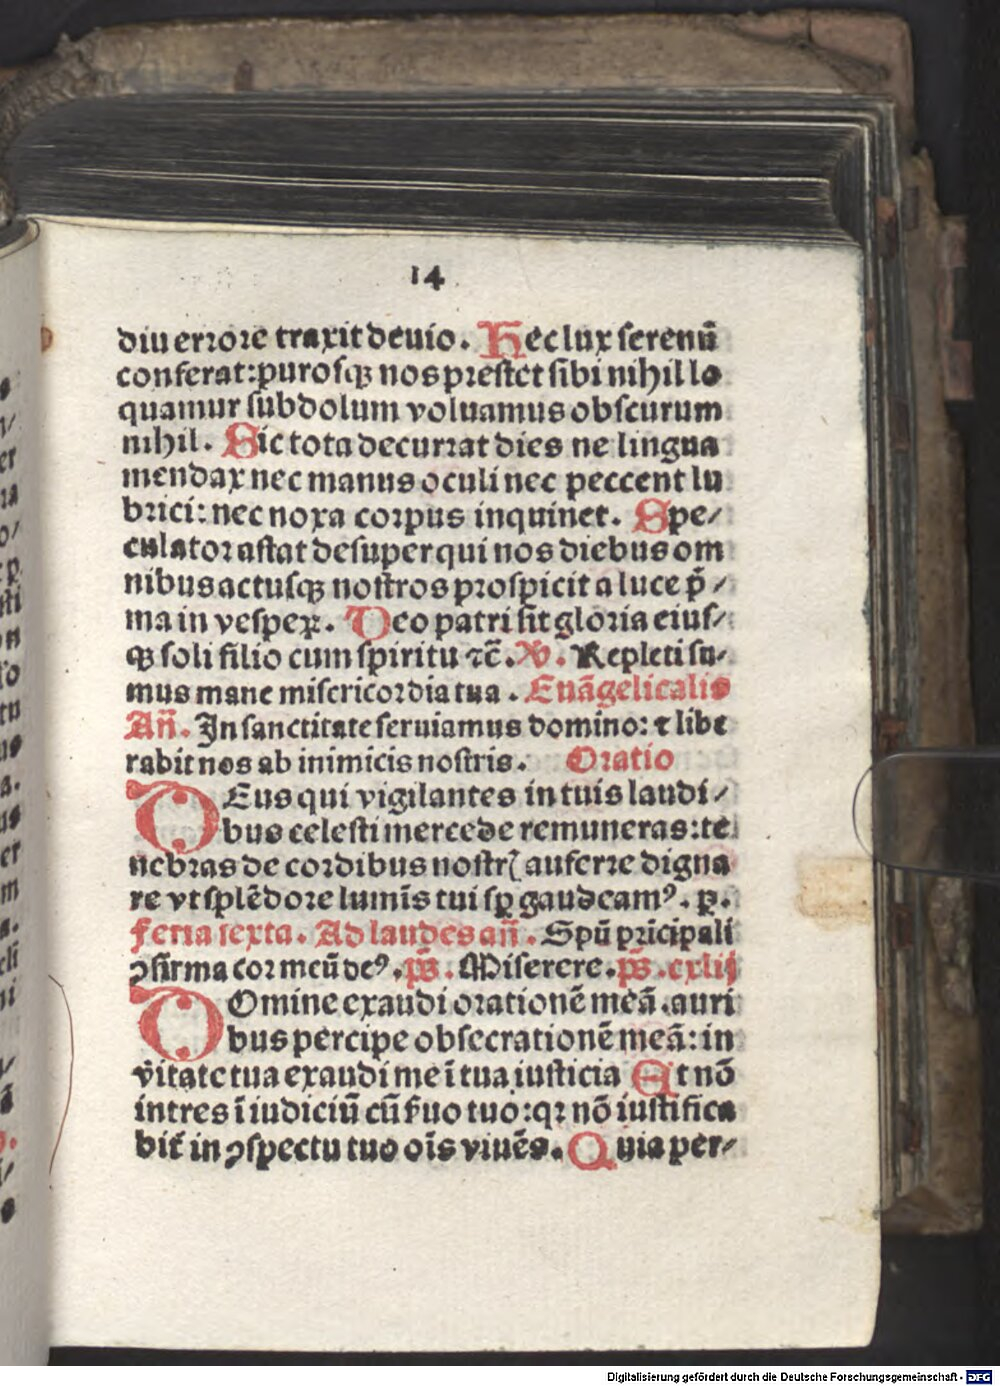 14
diu errore traxit deuio. Hec lux serenū
conferat: purosqꝫ nos prestet sibi nihil lo
quamur subdolum voluamus obscurum
nihil. Sic tota decurrat dies ne lingua
mendax nec manus oculi nec peccent lu
brici: nec noxa corpus inquinet. Spe⸗
culator astat desuper qui nos diebus om
nibus actusqꝫ nostros prospicit a luce p̄⸗
ma in vesperꝝ. Deo patri sit gloria eius⸗
qꝫ soli filio cum spiritu ⁊c̄. V̇. Repleti su⸗
mus mane misericordia tua. Euāgelicalis
An̄. In sanctitate seruiamus domino: ⁊ libe
rabit nos ab inimicis nostris. Oratio
DEus qui vigilantes in tuis laudi⸗
bus celesti mercede remuneras: te
nebras de cordibus nostrꝭ auferre digna
re vt splēdore lumīs tui sꝑ gaudeamꝰ. ꝑ.
Feria sexta. Ad laudes an̄. Spū pricipali
ꝯfirma cor meū deꝰ. ps̄. Miserere. ps̄. cxlij
DOmine exaudi orationē meā. auri
bus percipe obsecrationē meā: in
v̄itate tua exaudi me ī tua iusticia Et nō
intres ī iudiciū cū s̄uo tuo: qꝛ nō iustifica
bit̄ in ꝯspectu tuo oīs viuēs. Quia per⸗
Digitalisierung gefördert durch die Deutsche Forschungsgemeinschaft - DFG